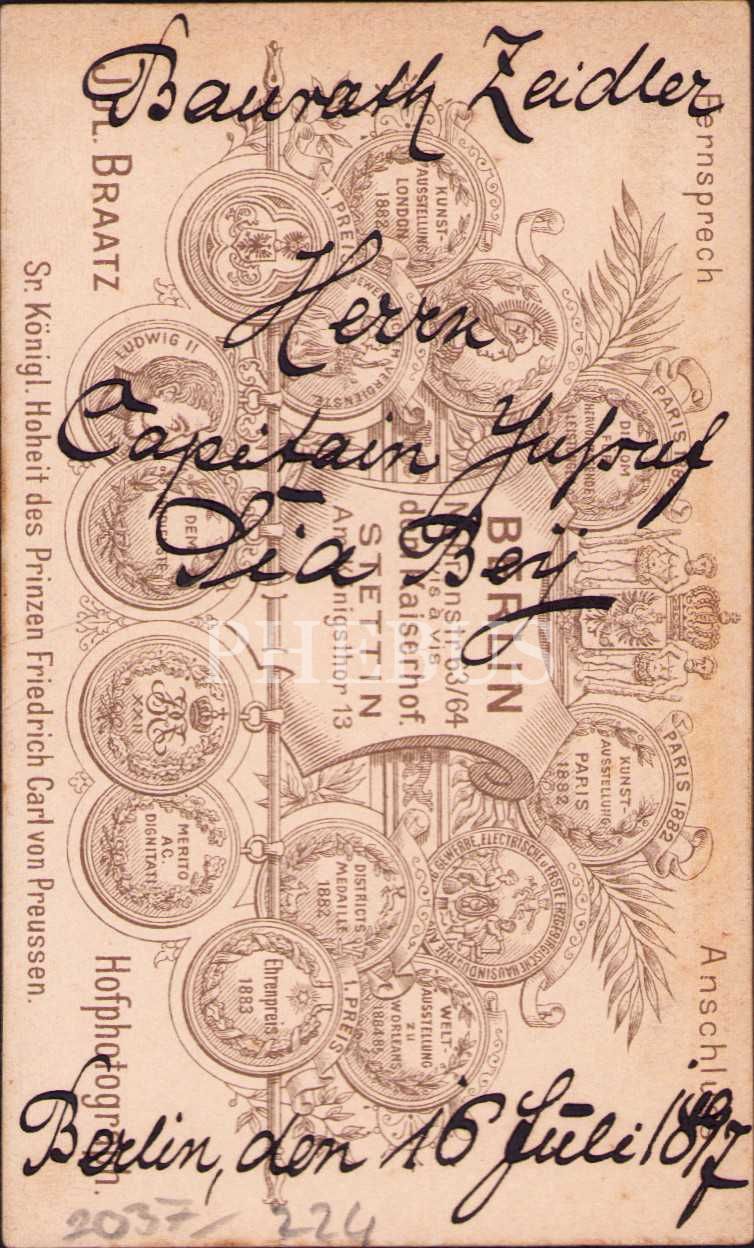 Baurath Zeidler
Herrn
Capitain Jussuf
Dia Beÿ
Berlin, den 16 Juli 1897
2037/ 224
Fernsprech Anschluss
PARIS 1882
PARIS 1882
KUNST-
AUSSTELLUNG
LONDON
1882
1. PREIS
VERDIENSTE
LUDWIG II
DEM
KUNST-
AUSSTELLUNG
PARIS
1882
BERLIN
Mohrenstr. 63/64
vis à vis
dem Kaiserhof.
STETTIN
Am Königsthor 13
XXII
MERITO
AC.
DIGNITATI
DISTRICTS
MEDAILLE
1882
Ehrenpreis
1883
1. PREIS
WELT-
AUSSTELLUNG
zu
N. ORLEANS
1884-85
JUL. BRAATZ Hofphotograph.
Sr. Königl. Hoheit des Prinzen Friedrich Carl von Preussen.
PHEBUS